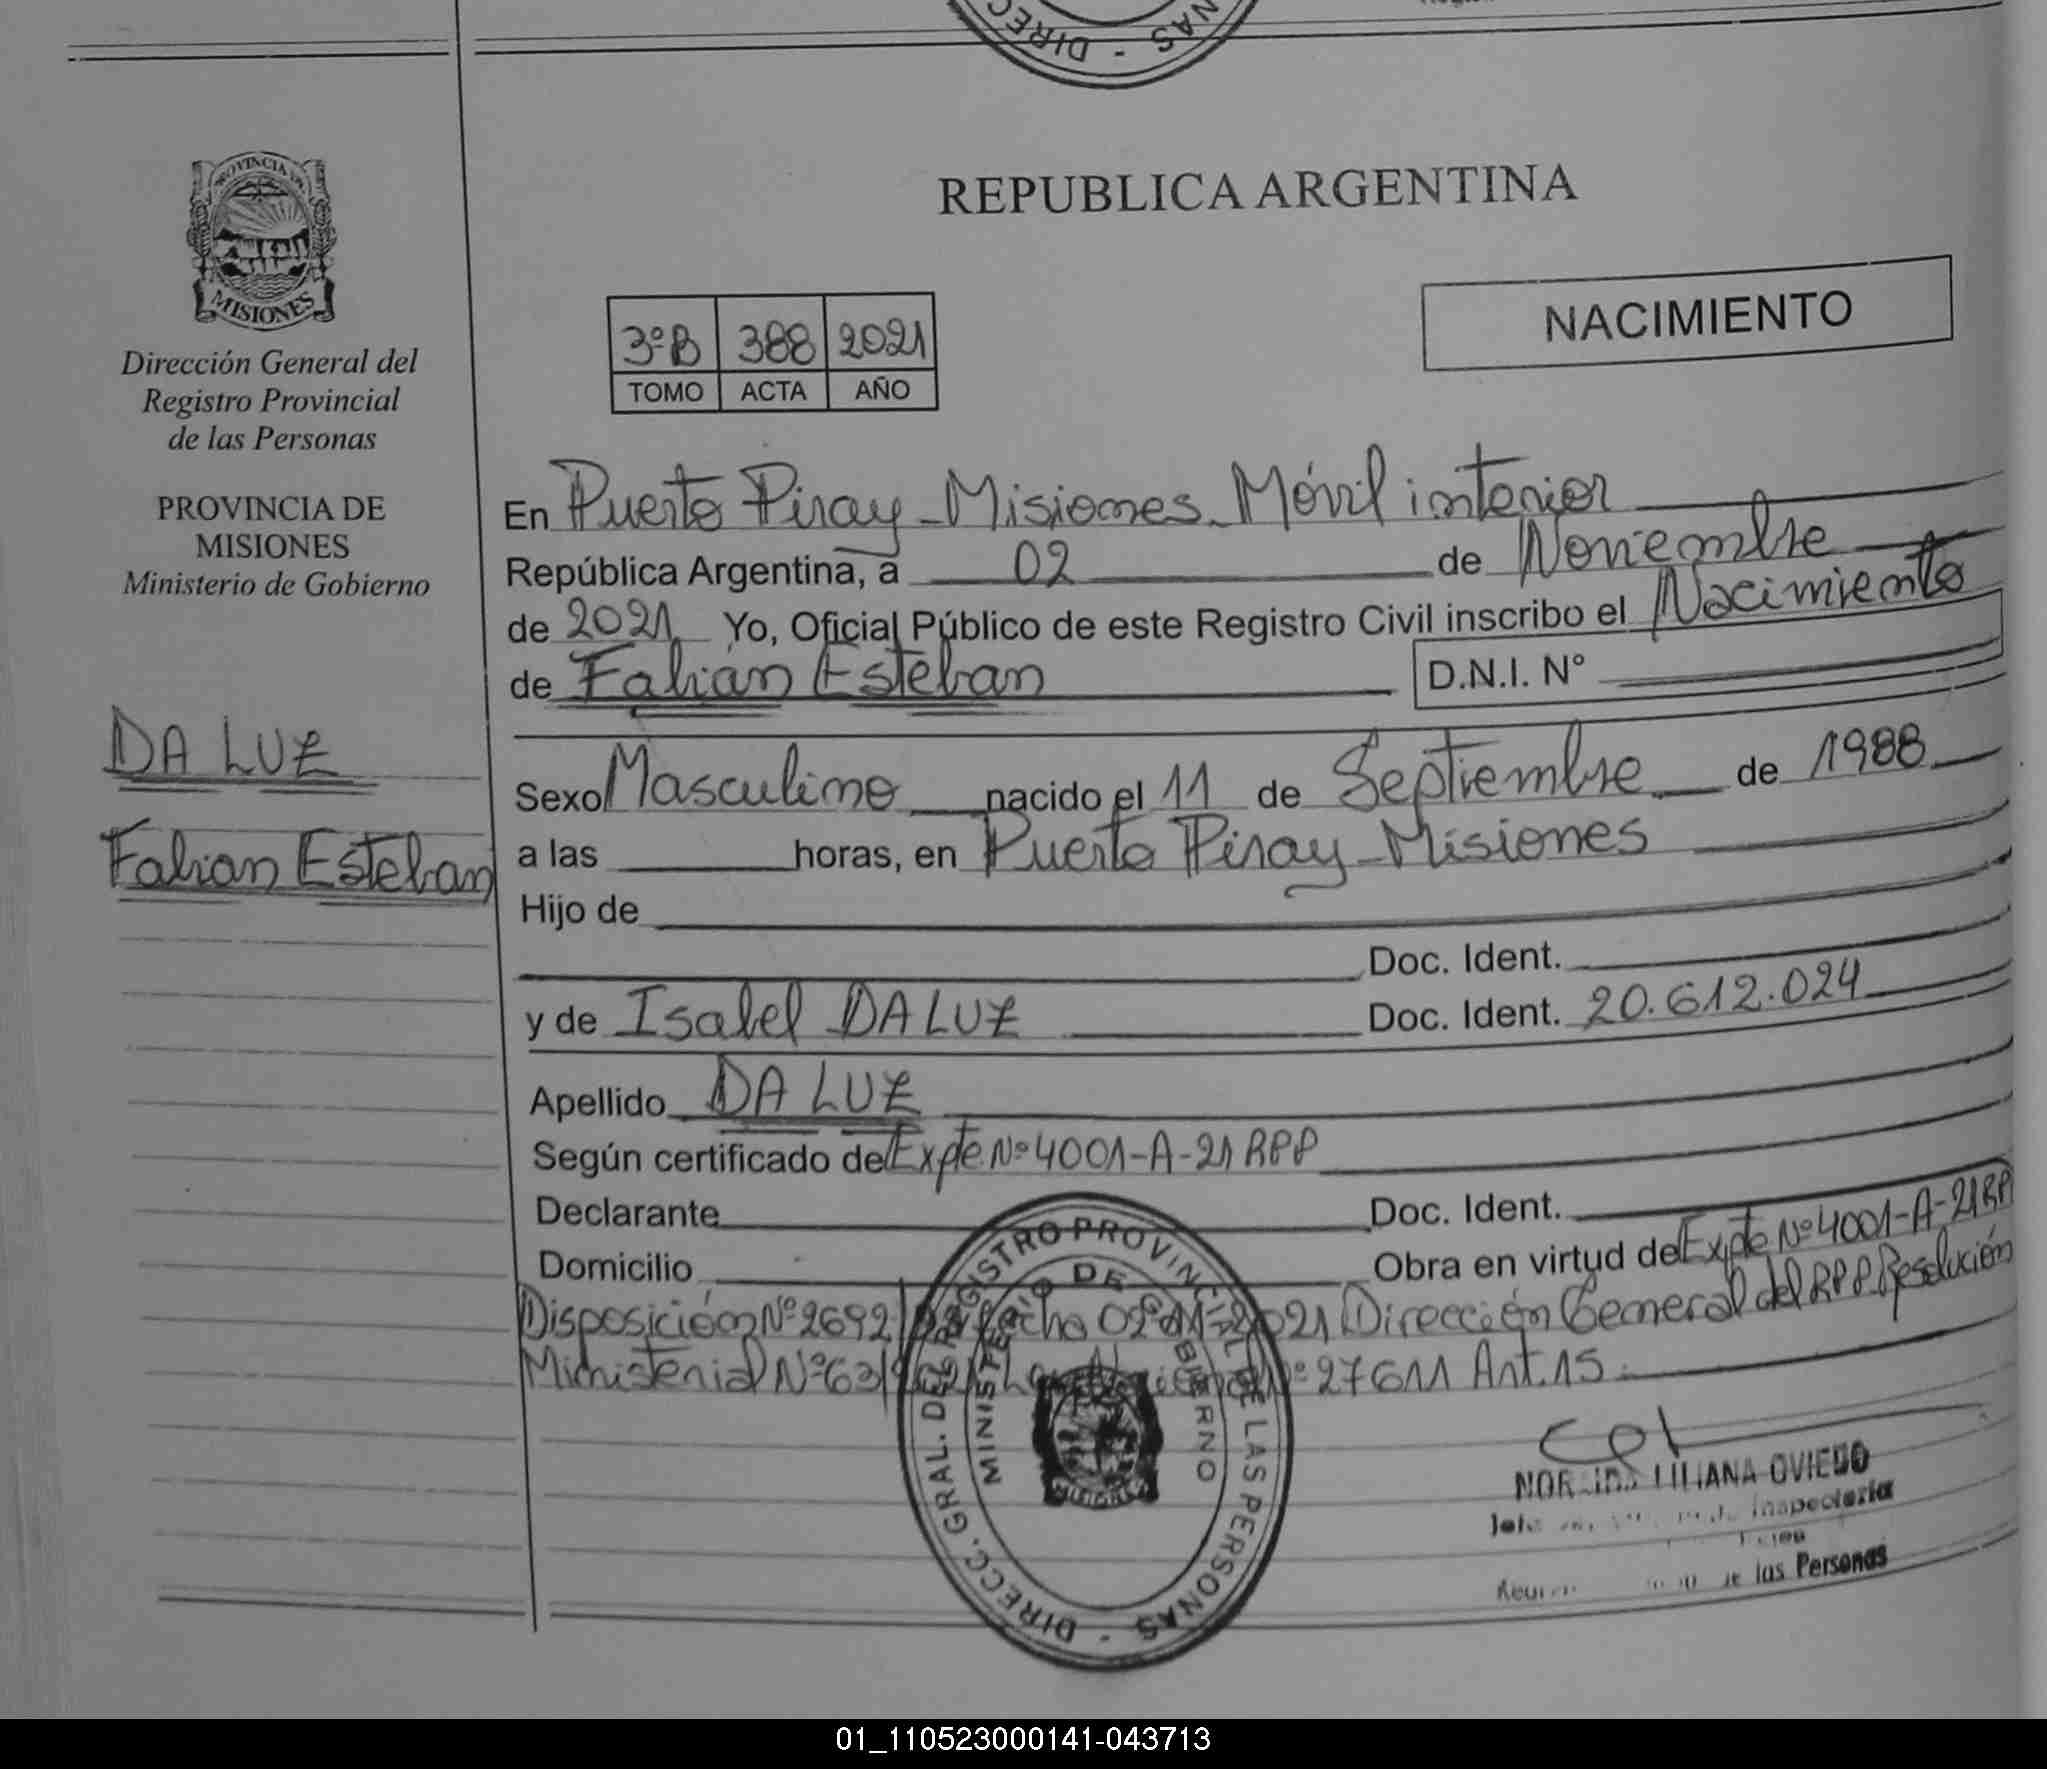 REPUBLICA ARGENTINA
PROVINCIA DE
MISIONES
Dirección General del
Registro Provincial
de las Personas
PROVINCIA DE
MISIONES
Ministerio de Gobierno
DA LUZ
Fabian Esteban
3ºB 388 2021
TOMO ACTA AÑO
NACIMIENTO
En Puerto Piray - Misiones - Móvil interior
República Argentina, a 02 de Noviembre
de 2021 Yo, Oficial Público de este Registro Civil inscribo el Nacimiento
de Fabián Esteban D.N.I. N°
Sexo Masculino nacido el 11 de Septiembre de 1988
a las horas, en Puerto Piray - Misiones
Hijo de
Doc. Ident.
y de Isabel DA LUZ Doc. Ident. 20.612.024
Apellido DA LUZ
Según certificado de Expte Nº 4001-A-21 RPP
Declarante Doc. Ident.
Domicilio Obra en virtud de Expte Nº 4001-A-21 RP
Disposición Nº 2692 fecha 02-11-2021 Dirección General del RPP. Resolución
Ministerial Nº 63 Nº 27611 Art. 15.
DIRECC. GRAL. DEL REGISTRO PROVINCIAL DE LAS PERSONAS -
MINISTERIO DE GOBIERNO
MISIONES
LILIANA OVIEDO
Inspectoria
de las Personas
01_110523000141-043713